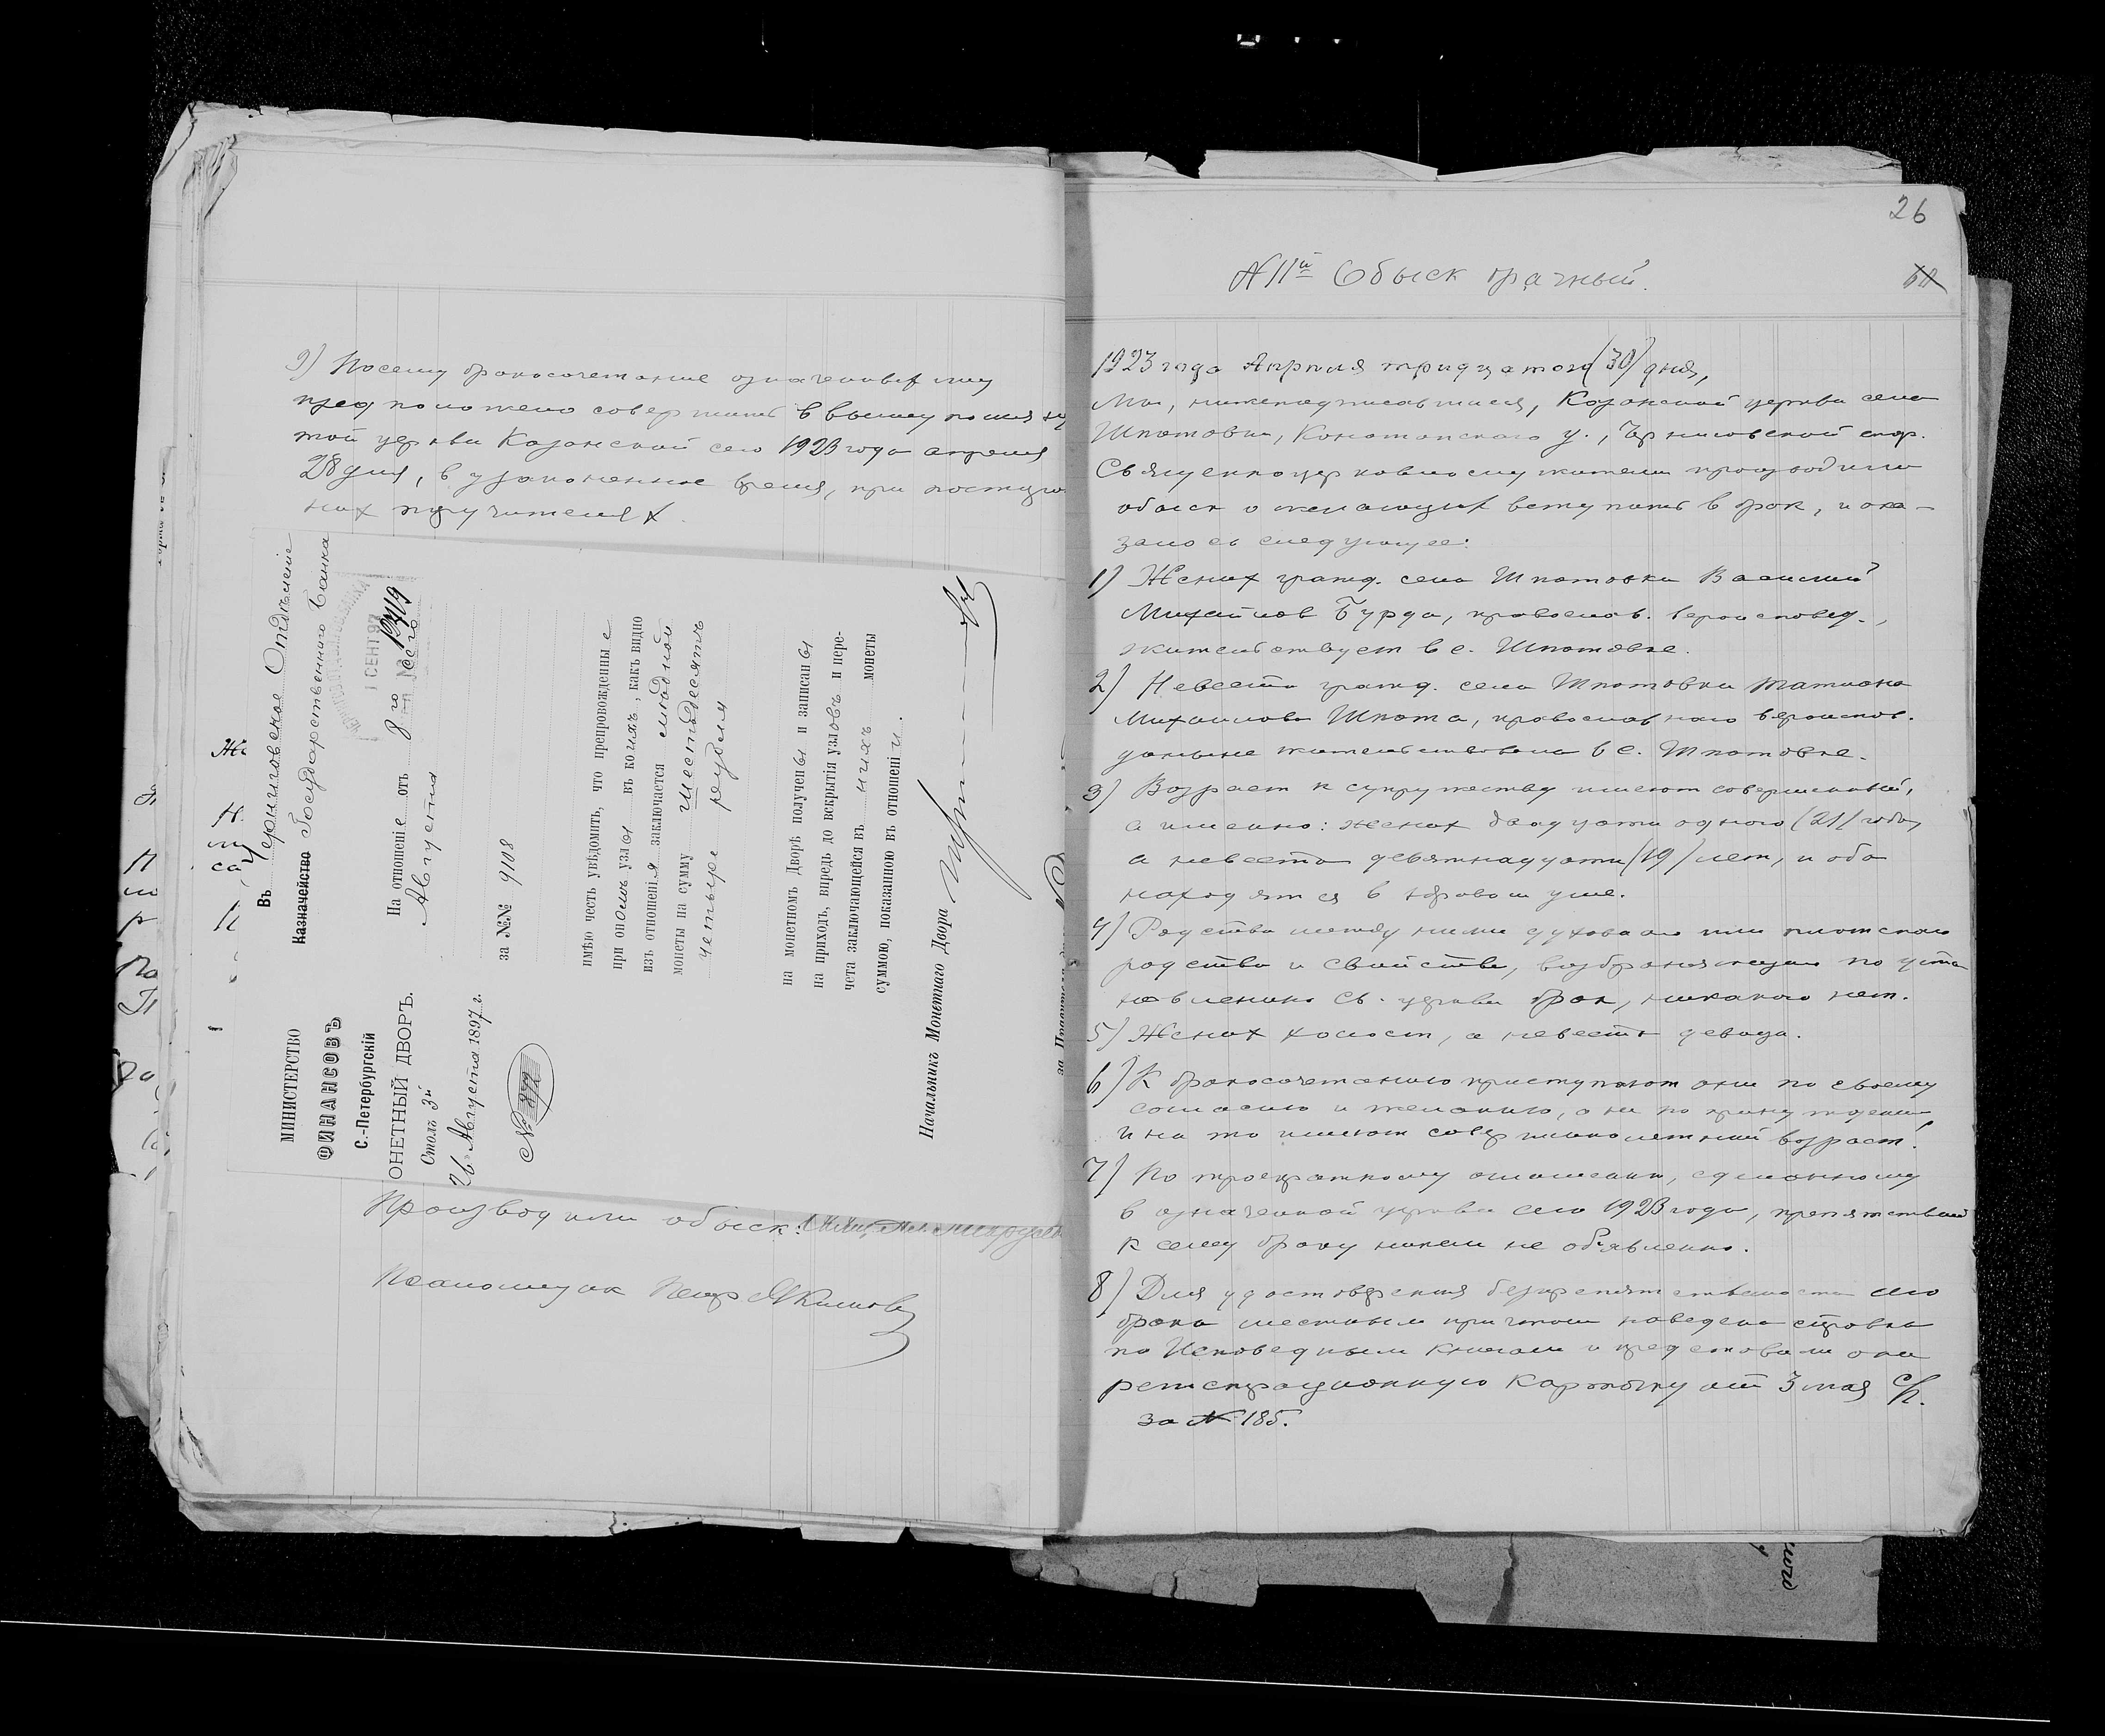 9) Посему бракосочетание означенных лиц
предположено совершить в вышеупомяну
той церкви Казанской сего 1923 года апреля
28 дня, в узаконенное время, при посторон
них поручителях.
Въ Черниговское Отдѣленіе
Казначейство Государственного Банка
1 СЕНТ 97
На отношеніе отъ 8 го сего
Августа
за №№ 9108
имѣю честь увѣдомить, что препровожденные
при ономъ узлы въ коихъ, какъ видно
изъ отношенія заключается мѣдной
монеты на сумму шестьдесятъ
четыре рубля
на монетномъ Дворѣ получены и записаны
на приходъ, впредь до вскрытія узловъ и пере-
чета заключающейся въ нихъ монеты
суммою, показанною въ отношеніи.
Начальникъ Монетнаго Двора
МИНИСТЕРСТВО
ФИНАНСОВЪ
С.-Петербургскій
ОНЕТНЫЙ ДВОРЪ.
Столъ 3й
26 Августа 1897 г.
№ 872
Производили обыск:
Псаломщик Петр Якимов
26
N 11й Обыск брачный.
1923 года Апреля тридцатого (30) дня,
Мы, нижеподписавшиеся, Казанской церкви села
Шпотовки, Конотопского у., Черниговской епар.
Священноцерковнослужители производили
обыск о желающих вступить в брак, и ока-
залось следующее:
1) Жених гражд. села Шпотовки Василий
Михайлов Бурда, православ. вероисповед.,
жительствует в с. Шпотовке.
2) Невеста гражд. села Шпотовки Татиана
Михаилова Шпота, православного вероиспов.
доныне жительствовала в с. Шпотовке.
3) Возраст к супружеству имеют совершенный,
а именно: жених двадцати одного (21) года,
а невеста девятнадцати (19) лет, и оба
находятся в здравом уме.
4) Родства между ними духовного или плотского
родства и свойства, возбраняющего по уста
новлению св. церкви брак, никакого нет.
5) Жених холост, а невеста девица.
6) К бракосочетанию приступают они по своему
согласию и желанию, а не по принуждению
и на то имеют совершеннолетний возраст.
7) По троекратному оглашению, сделанному
в означенной церкви сего 1923 года, препятствий
к сему браку никем не объявлено.
8) Для удостоверения безпрепятственности сего
брака местным причтом наведена справка
по Исповедным книгам и представили они
регистрационную карточку от 3 мая с/г.
за N 185.